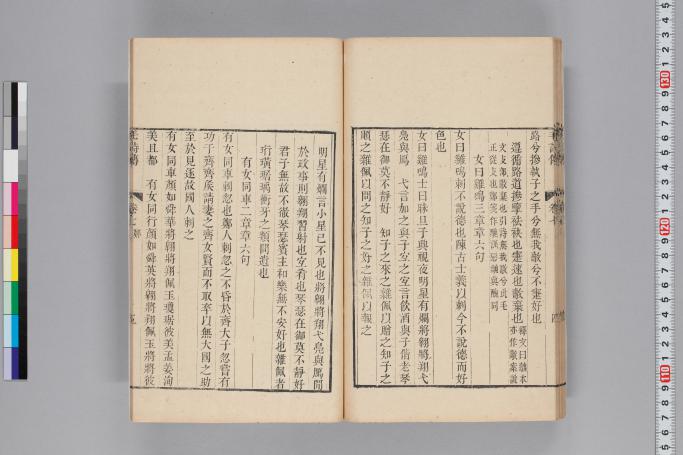 路兮摻執子之手兮無我𢾭兮不寁好也
遵循路道摻擥袪袂也寁速也𢾭棄也
女曰雞鳴三章章六句
女曰雞鳴刺不說德也陳古士義以刺今不說德而好
色也
女曰雞鳴士曰昧旦子與視夜明星有爛將翱將翔弋
鳧與鴈　弋言加之與子宜之宜言飲酒與子偕老琴
瑟在御莫不靜好　知子之來之雜佩以贈之知子之
順之雜佩以問之知子之好之雜佩以報之
明星有爛言小星已不見也將翱將翔弋鳧與鴈閒
於政事則翱翔習射也宜肴也琴瑟在御莫不靜好
君子無故不徹琴瑟賓主和樂無不安好也雜佩者
珩璜琚瑀衝牙之類問遺也
有女同車二章章六句
有女同車刺忽也鄭人刺忽之不昏於齊大子忽嘗有
功于齊齊矦請妻之齊女賢而不取卒以無大國之助
至於見逐故國人刺之
有女同車顏如舜華將翱將翔佩玉瓊琚彼美孟姜洵
美且都　有女同行顏如舜英將翱將翔佩玉將將彼